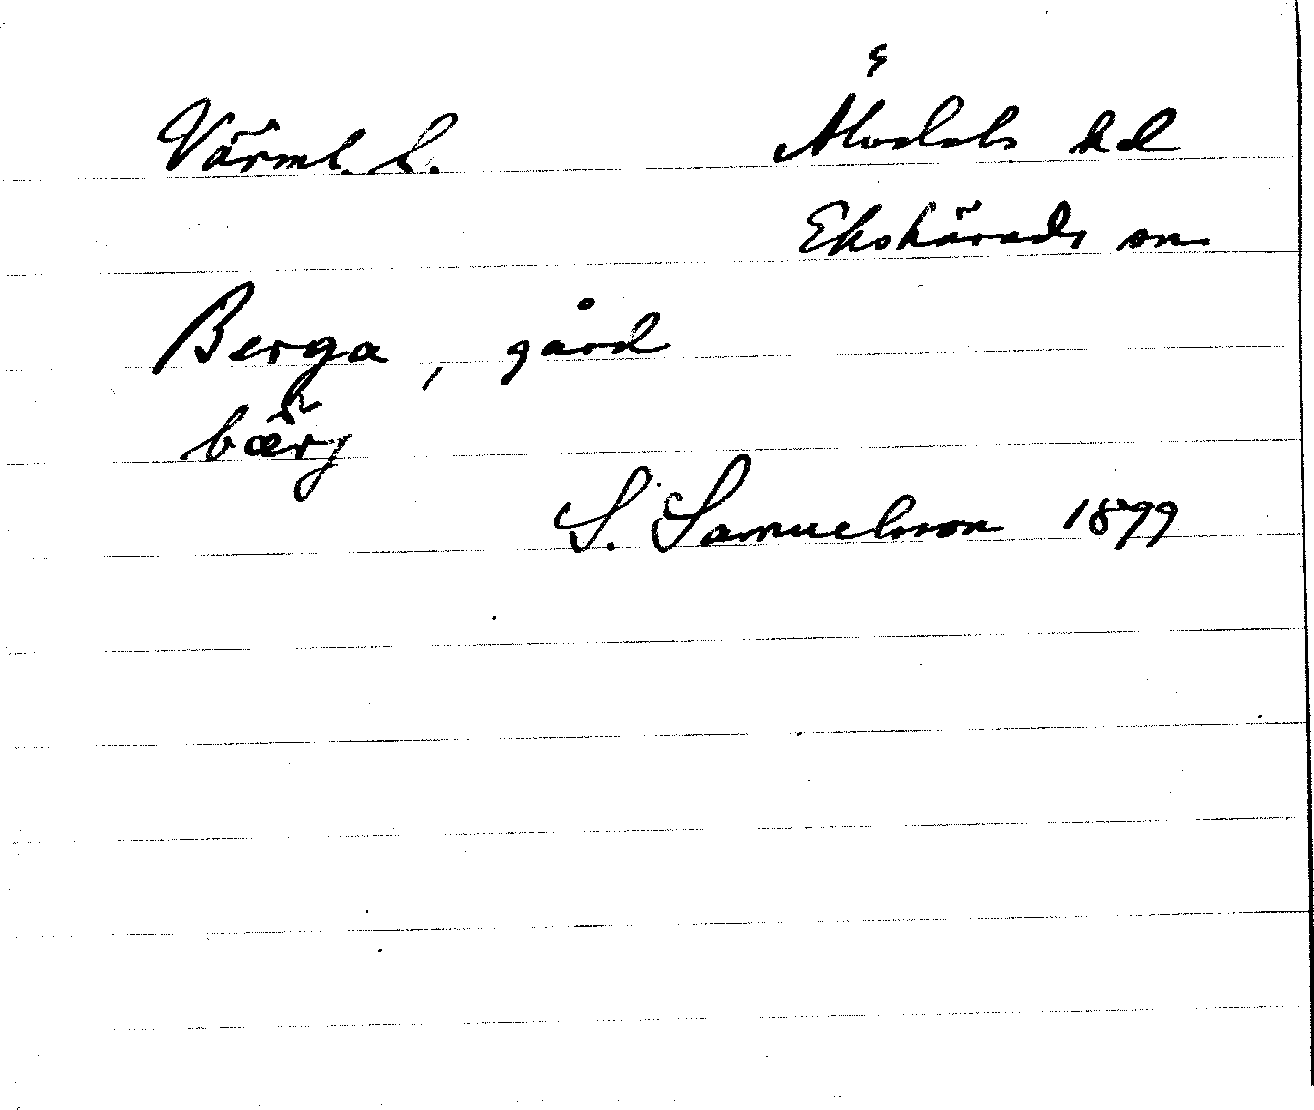 Värml. l. Älvdals hd
Ekshärads sn
Berga, gård
bærj
S. Samuelsson 1899